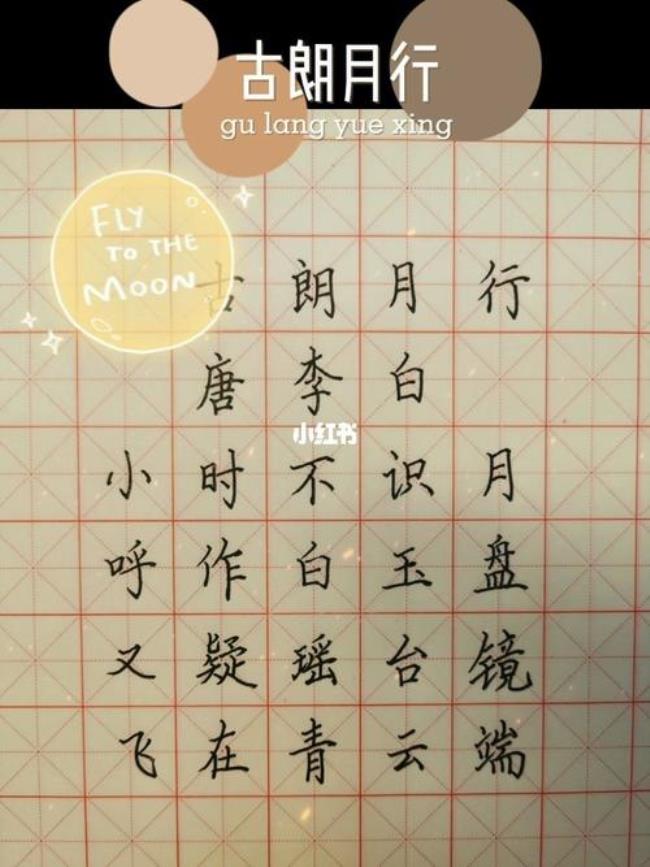 古朗月行
gu lang yue xing
FLY
TO THE
MOON
古朗月行
唐李白
小红书
小时不识月
呼作白玉盘
又疑瑶台镜
飞在青云端